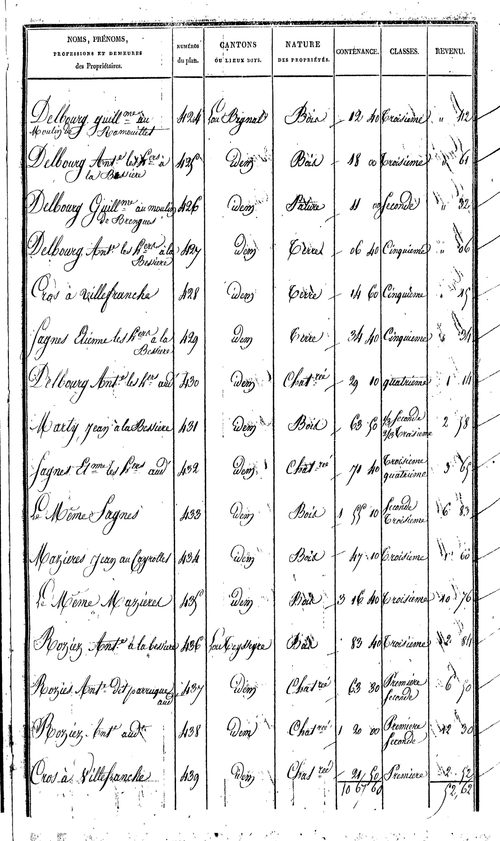 NOMS, PRÉNOMS,
PROFESSIONS ET DEMEURES
des Propriétaires.
NUMÉROS
du plan.
CANTONS
OU LIEUX DITS.
NATURE
DES PROPRIÉTÉS.
CONTENANCE.
CLASSES.
REVENU.
Delbourg guill.me au 424 Bois 12 40 Troisième " 42
Moulin de
Delbourg Ant.e les h.ers à 425 idem Bois 18 00 Troisième " 61
la Bessière
Delbourg Guill.me au moulin 426 idem Pâture 11 00 Seconde " 32
de
Delbourg Ant.e les h.ers à la 427 idem Terre 06 40 Cinquième " 06
Bessière
Cros à Villefranche 428 idem Terre 14 60 Cinquième " 15
Fagnes Etienne les h.ers à la 429 idem Terre 34 40 Cinquième 34
Bessière
Delbourg Ant.e les h.ers aud.t 430 idem Chat.rée 29 10 quatrième 1 14
Marty Jean à la Bessière 431 idem Bois 63 50 1/3 Seconde 2 58
2/3 Troisième
Fagnes Et.nne les h.ers aud.t 432 idem Chat.rée 71 40 Troisième 3 65
quatrième
Le Même Fagnes 433 idem Bois 1 55 10 Seconde 6 83
Troisième
Mazieres Jean au Cayrolles 434 idem Bois 47 10 Troisième 1 60
Le Même Mazieres 435 idem Bois 3 16 40 Troisième 10 76
Roziez Ant.e à la bessiere 436 Bois 83 40 Troisième 2 84
Rozies Ant.e dit 437 idem Chat.rée 63 80 Première 6 50
aud.t Seconde
Roziez Ant.e aud.t 438 idem Chat.rée 1 20 00 Première 12 30
Seconde
Cros à Villefranche 439 idem Chat.rée 21 50 Première 2 52
10 67 60 52,62